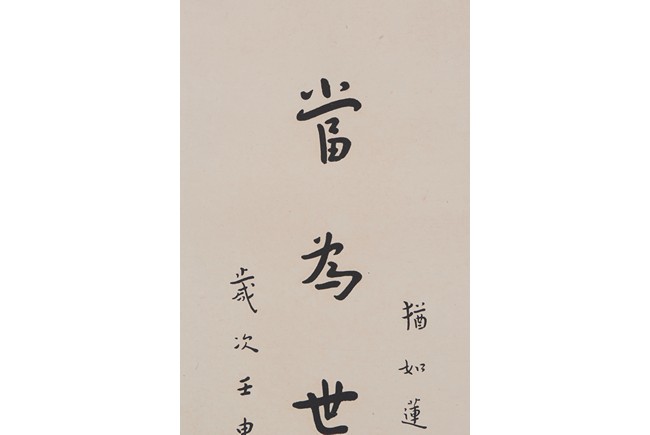 猶如蓮
當為世
歲次壬申